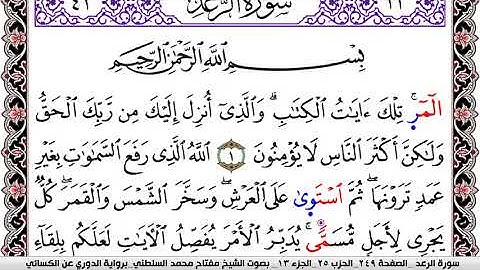 ١٣ سُورَةُ الرَّعْدِ ٤٣
بِسْمِ اللَّهِ الرَّحْمَٰنِ الرَّحِيمِ
الٓمٓر ۚ تِلْكَ ءَايَٰتُ الْكِتَٰبِ ۗ وَالَّذِىٓ أُنزِلَ إِلَيْكَ مِن رَّبِّكَ الْحَقُّ
وَلَٰكِنَّ أَكْثَرَ النَّاسِ لَا يُؤْمِنُونَ ١ اللَّهُ الَّذِى رَفَعَ السَّمَٰوَٰتِ بِغَيْرِ
عَمَدٍ تَرَوْنَهَا ۖ ثُمَّ اسْتَوَىٰ عَلَى الْعَرْشِ ۖ وَسَخَّرَ الشَّمْسَ وَالْقَمَرَ ۖ كُلٌّ
يَجْرِى لِأَجَلٍ مُّسَمًّى ۚ يُدَبِّرُ الْأَمْرَ يُفَصِّلُ الْءَايَٰتِ لَعَلَّكُم بِلِقَآءِ
سورة الرعد _الصفحة ٢٤٩_ الحزب ٢٥_ الجزء ١٣_ بصوت الشيخ مفتاح محمد السلطني_ برواية الدوري عن الكسائي